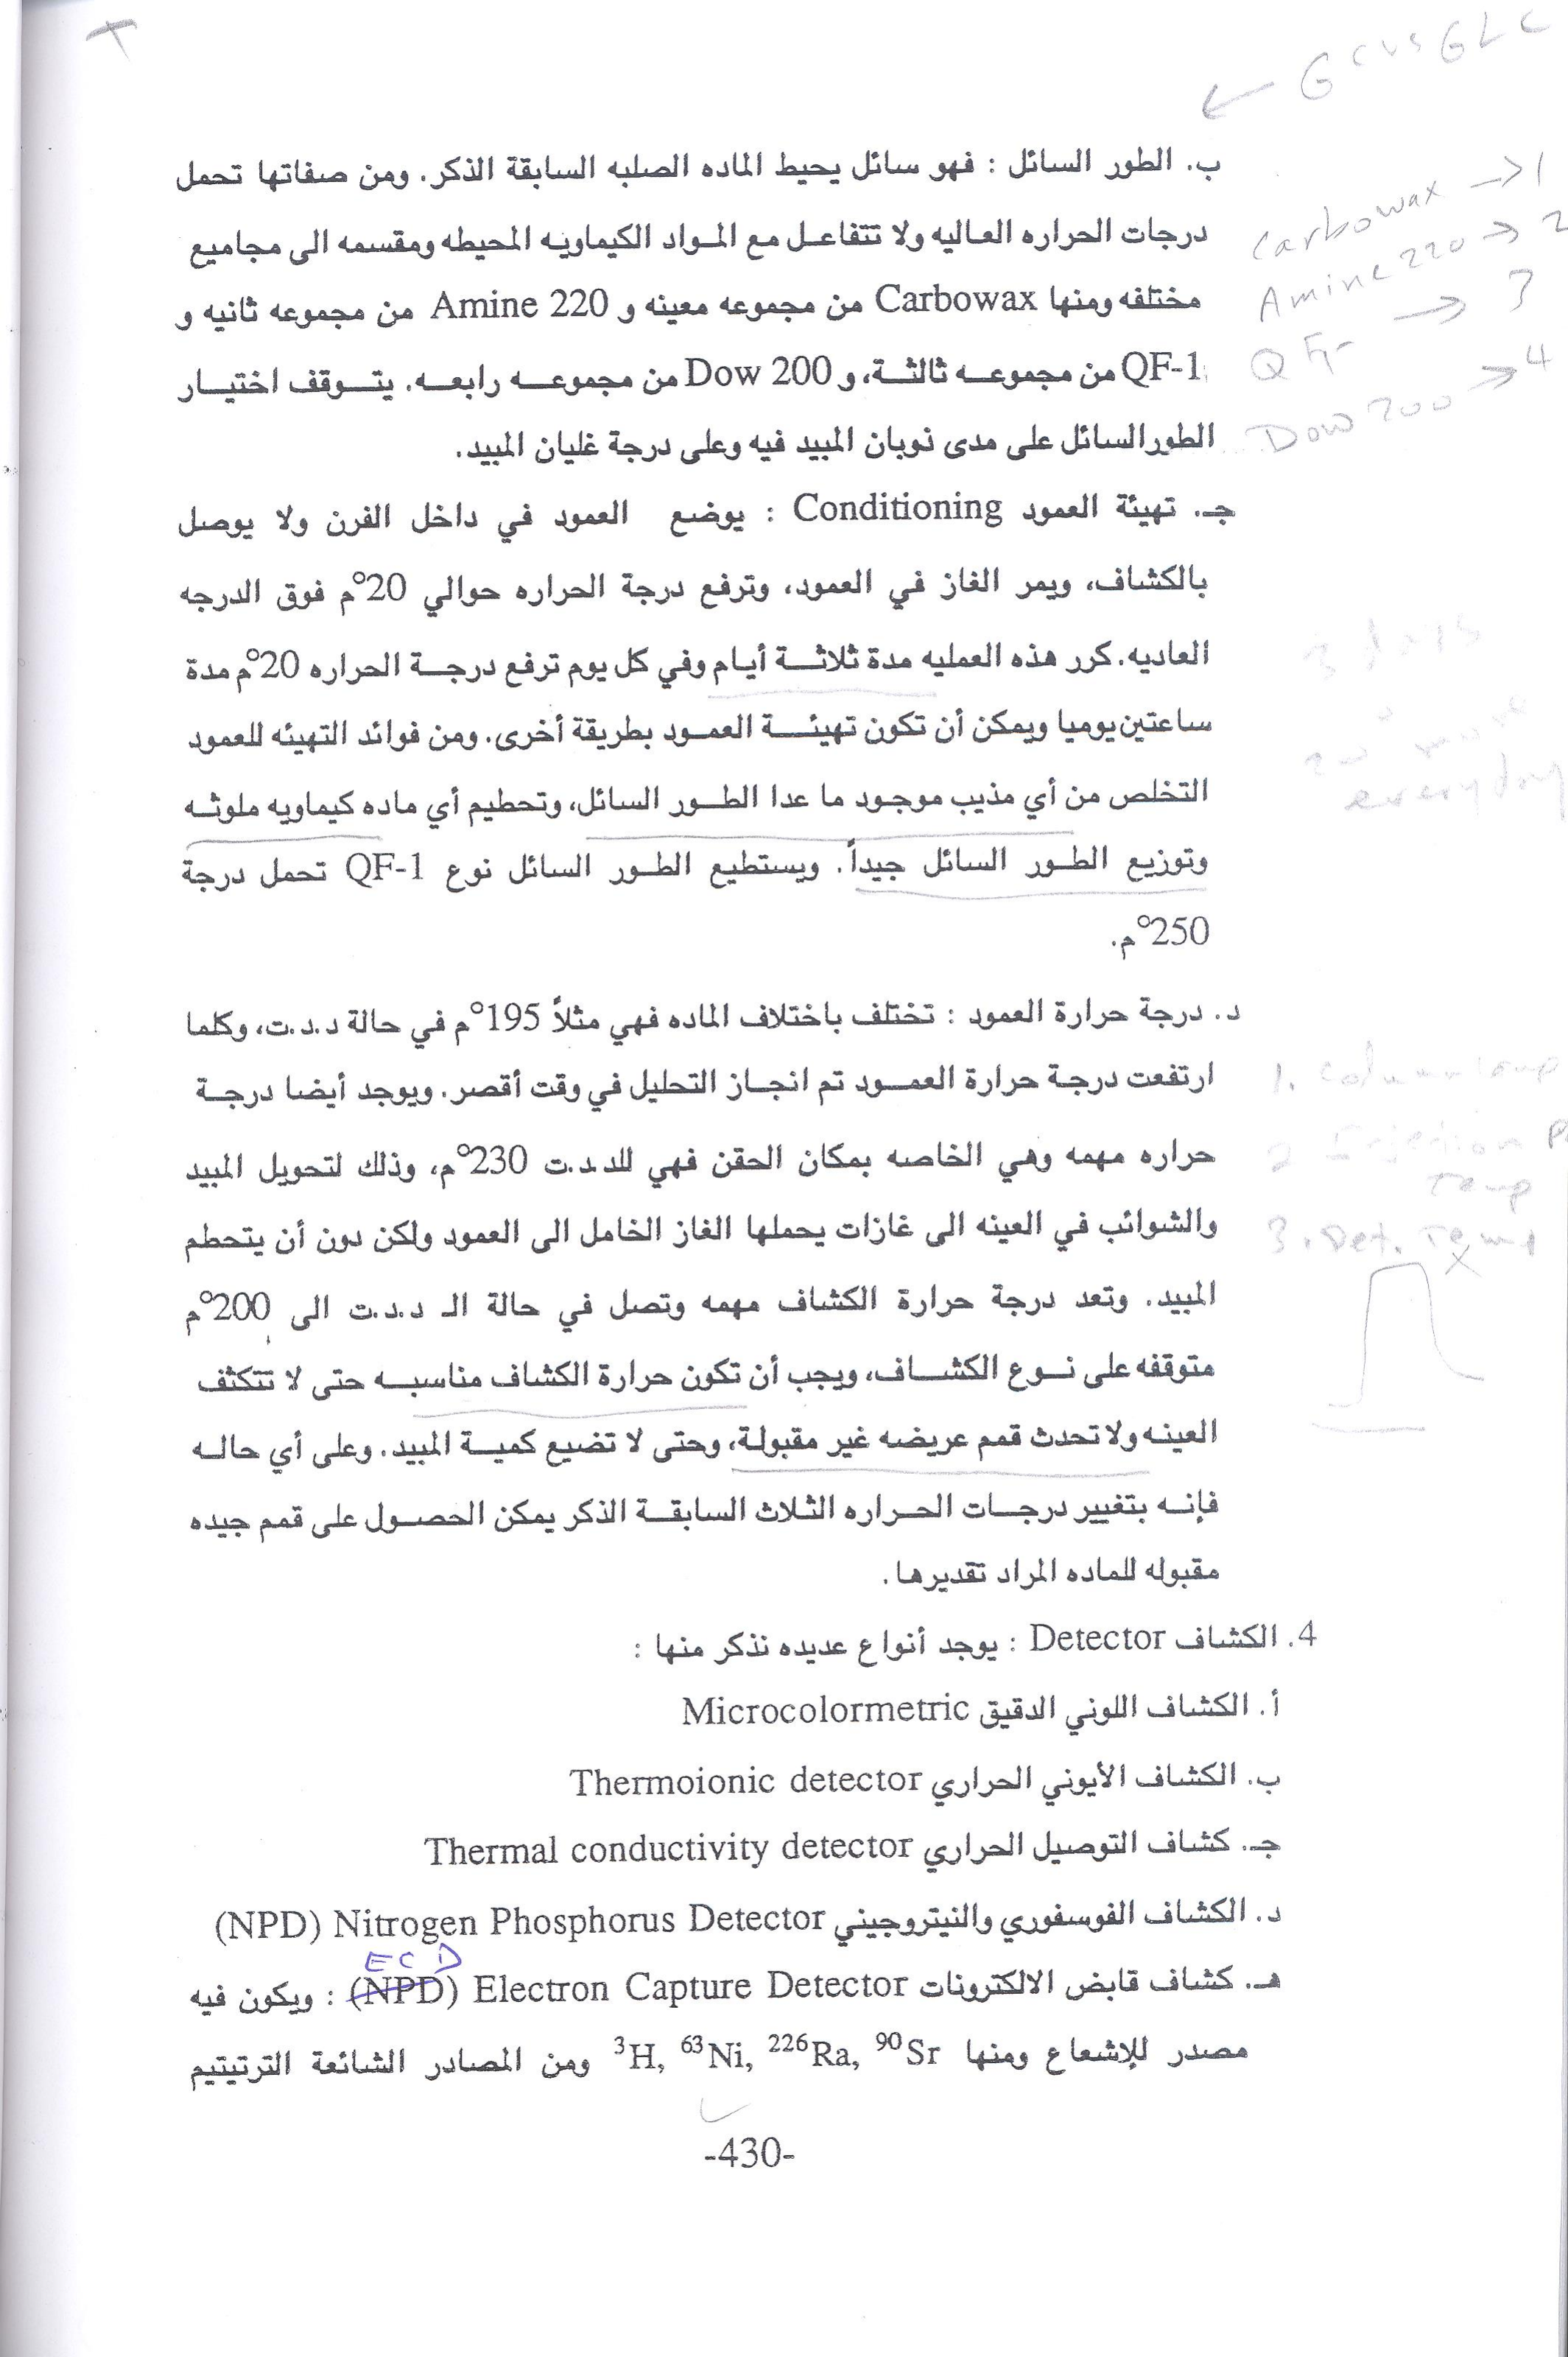 GC vs GLC ←
ب. الطور السائل : فهو سائل يحيط الماده الصلبه السابقة الذكر. ومن صفاتها تحمل
درجات الحراره العاليه ولا تتفاعل مع المواد الكيماويه المحيطه ومقسمه الى مجاميع
مختلفه ومنها Carbowax من مجموعه معينه و Amine 220 من مجموعه ثانيه و
QF-1 من مجموعه ثالثة، و Dow 200 من مجموعه رابعه. يتوقف اختيار
الطور السائل على مدى نوبان المبيد فيه وعلى درجة غليان المبيد.
Carbowax → 1
Amine 220 → 2
QF- → 3
Dow 200 → 4
جـ. تهيئة العمود Conditioning : يوضع العمود في داخل الفرن ولا يوصل
بالكشاف، ويمر الغاز في العمود، وترفع درجة الحراره حوالي 20°م فوق الدرجه
العاديه. كرر هذه العمليه مدة ثلاثة أيام وفي كل يوم ترفع درجة الحراره 20°م مدة
ساعتين يوميا ويمكن أن تكون تهيئة العمود بطريقة أخرى. ومن فوائد التهيئه للعمود
التخلص من أي مذيب موجود ما عدا الطور السائل، وتحطيم أي ماده كيماويه ملوثه
وتوزيع الطور السائل جيداً. ويستطيع الطور السائل نوع QF-1 تحمل درجة
250°م.
3 days
everyday
د. درجة حرارة العمود : تختلف باختلاف الماده فهي مثلاً 195°م في حالة د.د.ت، وكلما
ارتفعت درجة حرارة العمود تم انجاز التحليل في وقت أقصر. ويوجد أيضا درجة
حراره مهمه وهي الخاصه بمكان الحقن فهي للد.د.ت 230°م، وذلك لتحويل المبيد
والشوائب في العينه الى غازات يحملها الغاز الخامل الى العمود ولكن دون أن يتحطم
المبيد. وتعد درجة حرارة الكشاف مهمه وتصل في حالة الـ د.د.ت الى 200°م
متوقفه على نوع الكشاف، ويجب أن تكون حرارة الكشاف مناسبه حتى لا تتكثف
العينه ولا تحدث قمم عريضه غير مقبولة، وحتى لا تضيع كمية المبيد. وعلى أي حاله
فإنه بتغيير درجات الحراره الثلاث السابقة الذكر يمكن الحصول على قمم جيده
مقبوله للماده المراد تقديرها.
1. Column temp
2 Injection P
Temp
3. Det. Temp
x
4. الكشاف Detector : يوجد أنواع عديده نذكر منها :
أ. الكشاف اللوني الدقيق Microcolormetric
ب. الكشاف الأيوني الحراري Thermoionic detector
جـ. كشاف التوصيل الحراري Thermal conductivity detector
د. الكشاف الفوسفوري والنيتروجيني Nitrogen Phosphorus Detector (NPD)
ECD
هـ. كشاف قابض الالكترونات Electron Capture Detector (NPD) : ويكون فيه
مصدر للإشعاع ومنها ³H, ⁶³Ni, ²²⁶Ra, ⁹⁰Sr ومن المصادر الشائعة الترتيتيم
-430-